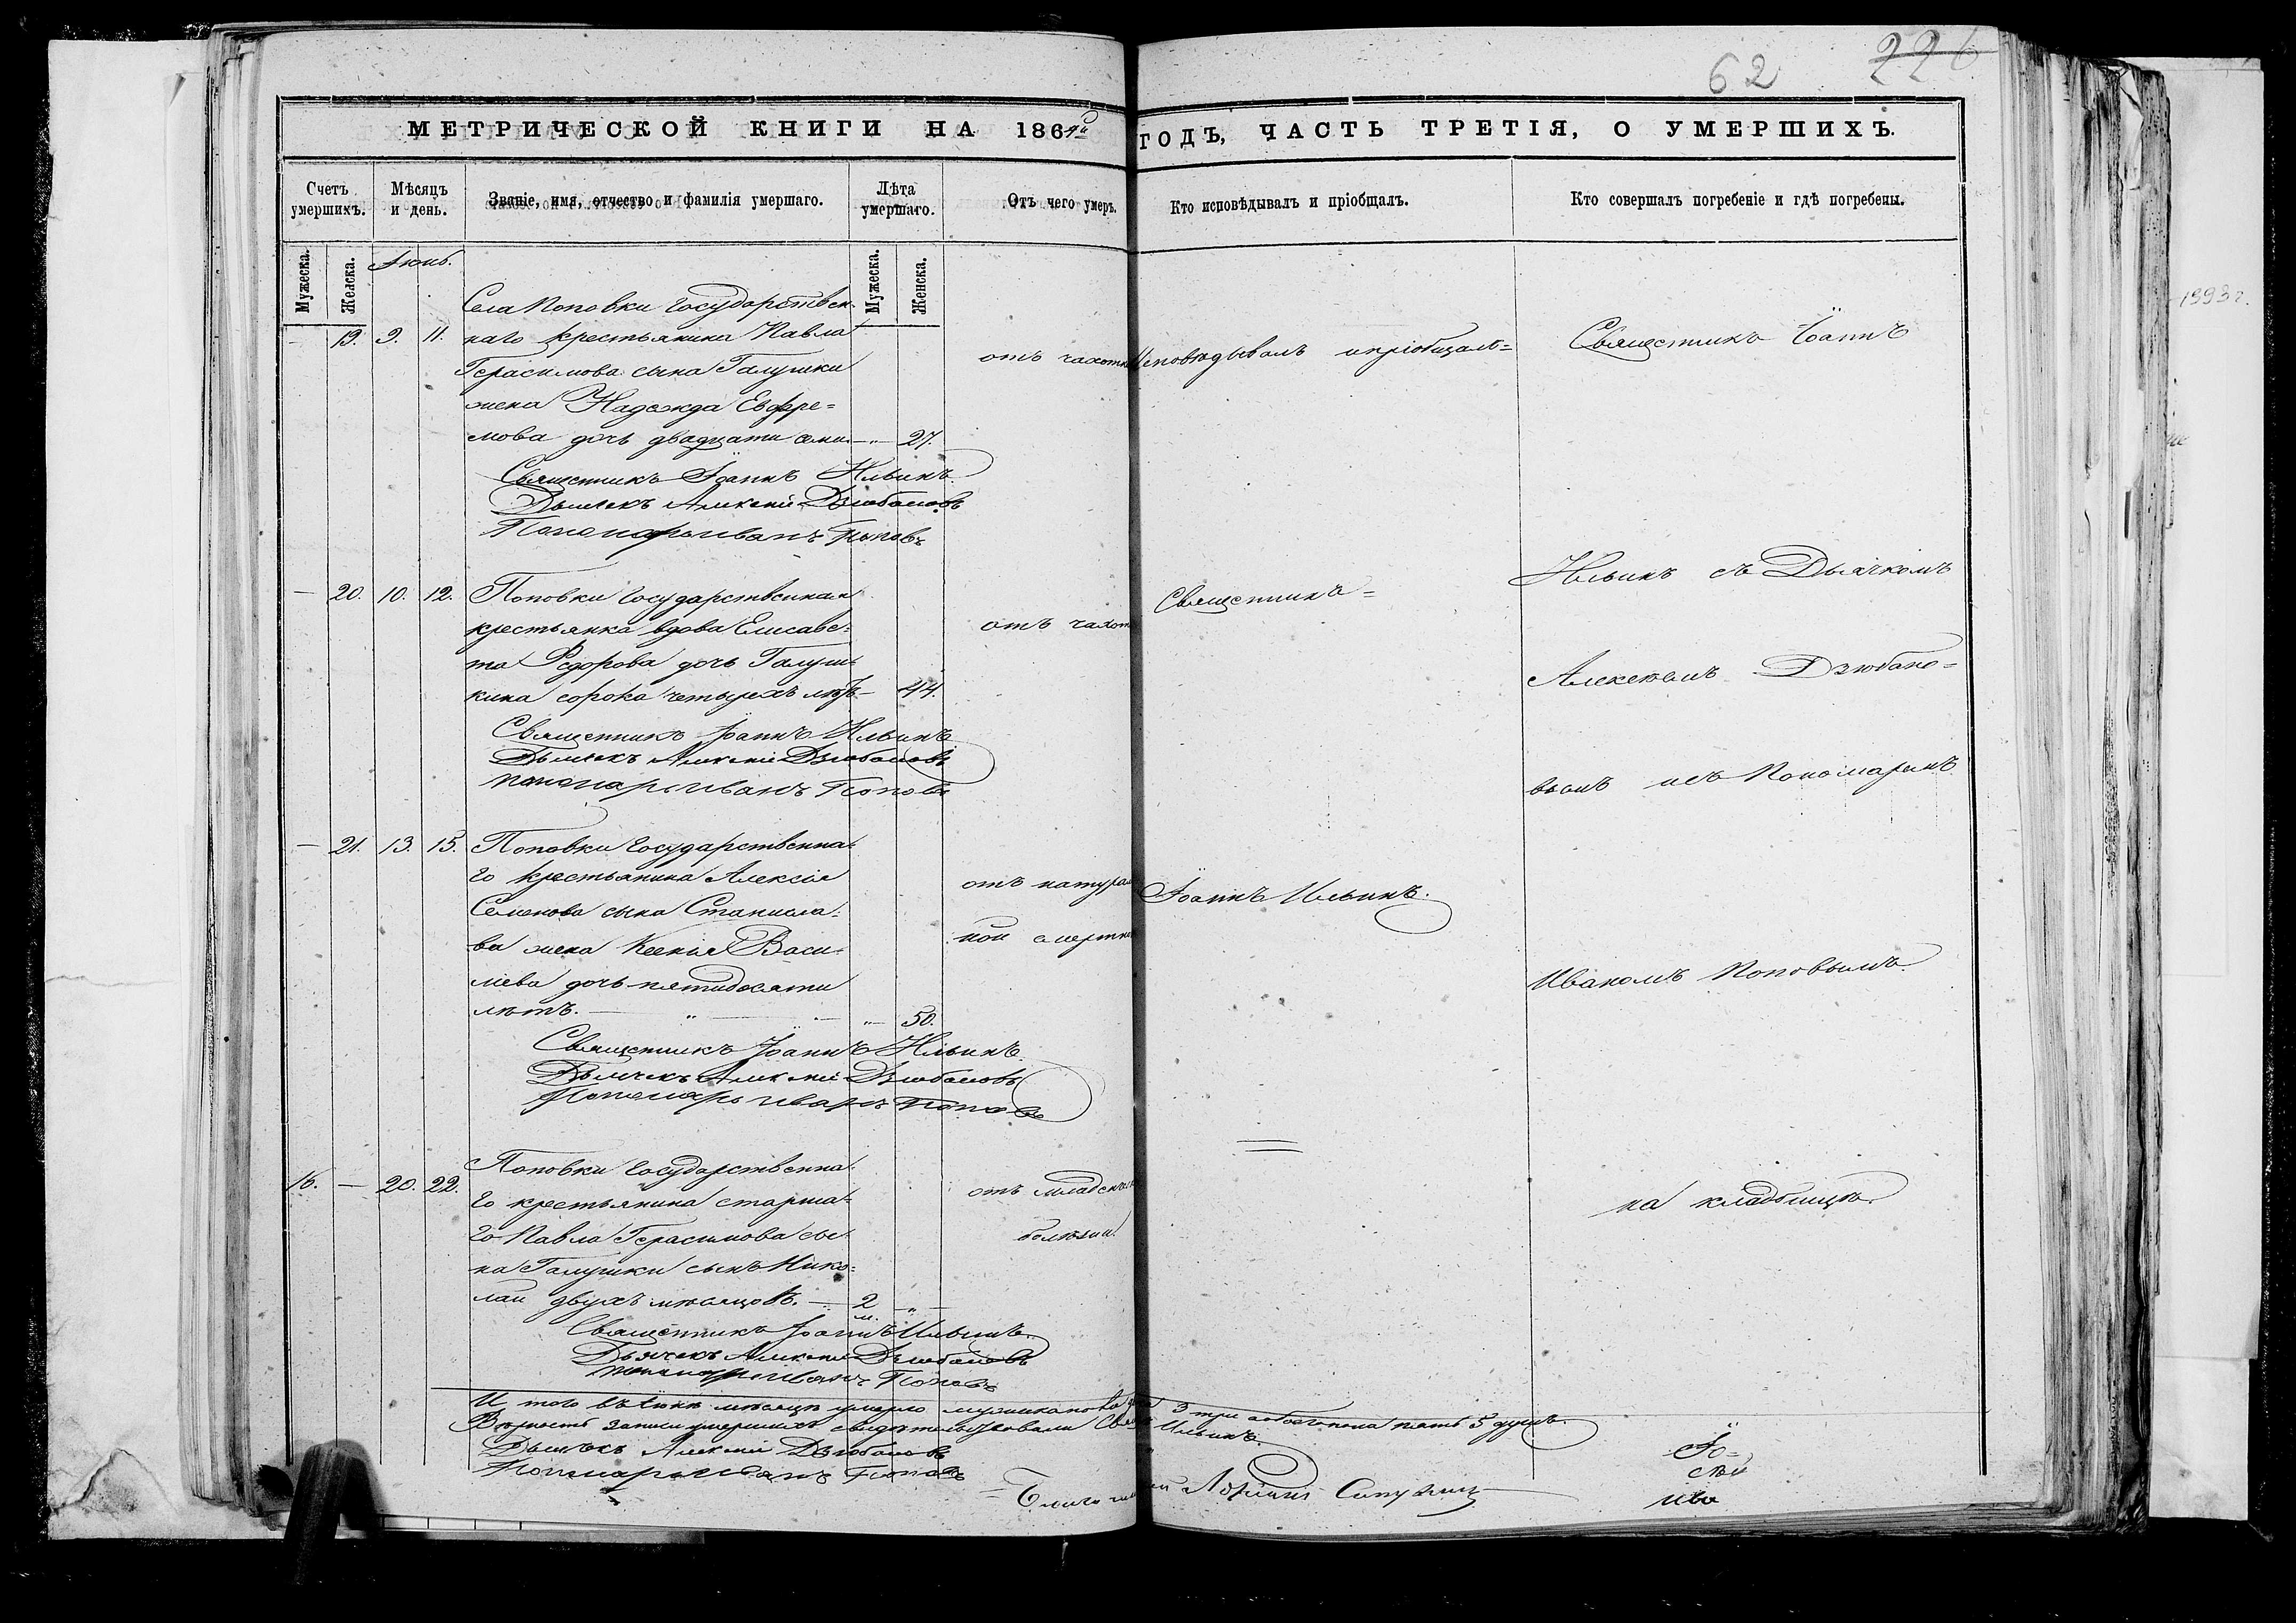 62 226
МЕТРИЧЕСКОЙ КНИГИ НА 1864й ГОДЪ, ЧАСТЬ ТРЕТІЯ, О УМЕРШИХЪ.
Счетъ умершихъ.
Мѣсяцъ и день.
Званіе, имя, отчество и фамилія умершаго.
Лѣта умершаго.
Отъ чего умеръ.
Кто исповѣдывалъ и пріобщалъ.
Кто совершалъ погребеніе и гдѣ погребены.
Мужеска. Женска.
Мужеска. Женска.
Села Поповки Государствен-
— 19. 9. 11. наго крестьянина Павла
Герасимова сына Галушки
жена Надежда Евфре=
мова дочь двадцати семи — „ — 27.
отъ чахотк
Священникъ Іоаннъ Ильинъ
Дьячекъ Алексій Дзюбановъ
Пономарь Иванъ Поповъ
— 20. 10. 12. Поповки Государственная
крестьянка вдова Елисаве=
та Федорова дочь Галуш
кина сорока четырехъ лѣтъ 44.
отъ чахот
Священникъ Іоаннъ Ильинъ
Дьячекъ Алексій Дзюбановъ
Пономарь Иванъ Поповъ
— 21. 13. 15. Поповки Государственна-
го крестьянина Алексія
Семенова сына Станисла-
ва жена Ксенія Васи-
лева дочь пятидесяти
лѣтъ. — „ — „ — 50.
отъ натурал
ной смерти
Священникъ Іоаннъ Ильинъ.
Дьячекъ Алексій Дзюбановъ
Пономарь Иванъ Поповъ
16. — 20. 22. Поповки Государственна-
го крестьянина старша-
го Павла Герасимова сы-
на Галушки сынъ Нико=
лай двухъ мѣсяцовъ. — 2 м. — „ —
отъ младенч
болѣзни.
Священникъ Іоаннъ Ильинъ.
Дьячекъ Алексій Дзюбановъ
Пономарь Иванъ Поповъ
И того въ Іюнѣ мѣсяцѣ умерло мужеска пола 3 три обоего пола пять 5 душъ.
Вѣрность записи умершихъ свидѣтельствовали Ильинъ.
Дьячекъ Алексій Дзюбановъ
Пономарь Иванъ Поповъ
Исповѣдывалъ и пріобщалъ=
Священникъ=
Іоаннъ Ильинъ.
Священникъ Іоаннъ
Ильинъ съ Дьячкомъ
Алексѣемъ Дзюбано=
вымъ и съ Пономаремъ
Иваномъ Поповымъ.
на кладбищѣ.
Ива